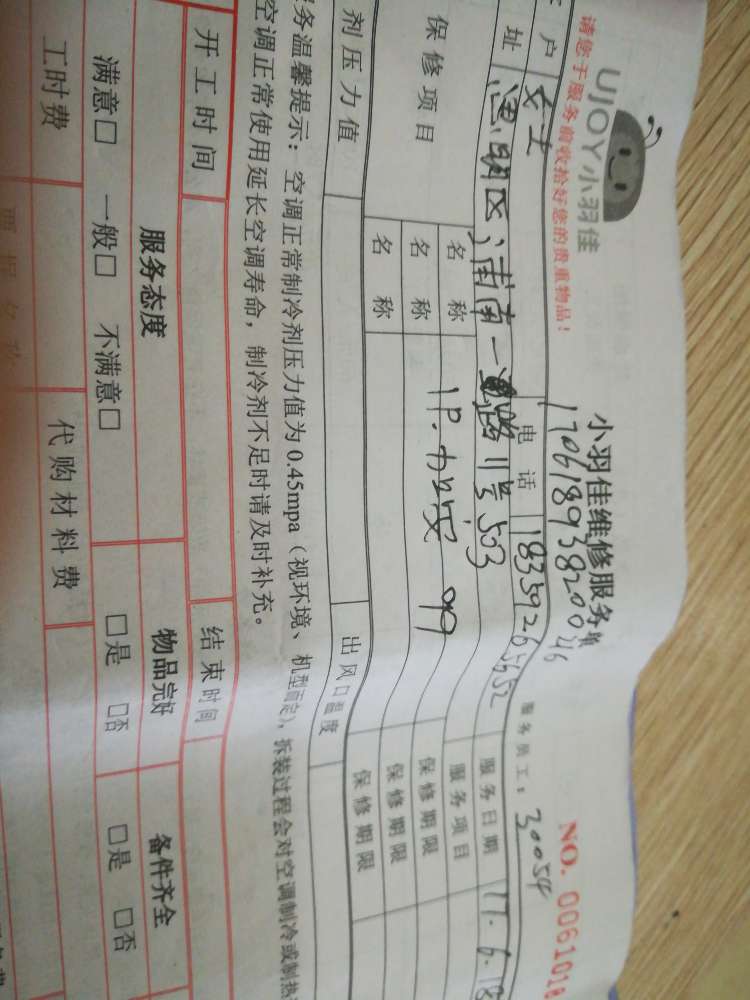 UJOY小羽佳
小羽佳维修服务单
NO. 0061018
请您于服务前收拾好您的贵重物品!
17061893820046
服务员工: 30054
户 女士 电话 18359265652 服务日期 17.6.18
址 思明区浦南一路11号503 服务项目
保修项目 名称 保修期限
名称 1P.加氟 99 保修期限
名称 保修期限
剂压力值 出风口温度
务温馨提示:空调正常制冷剂压力值为0.45mpa(视环境、机型而定),拆装过程会对空调制冷或制热
空调正常使用延长空调寿命,制冷剂不足时请及时补充。
开工时间 结束时间
服务态度 物品完好 备件齐全
满意□ 一般□ 不满意□ □是 □否 □是 □否
工时费 代购材料费